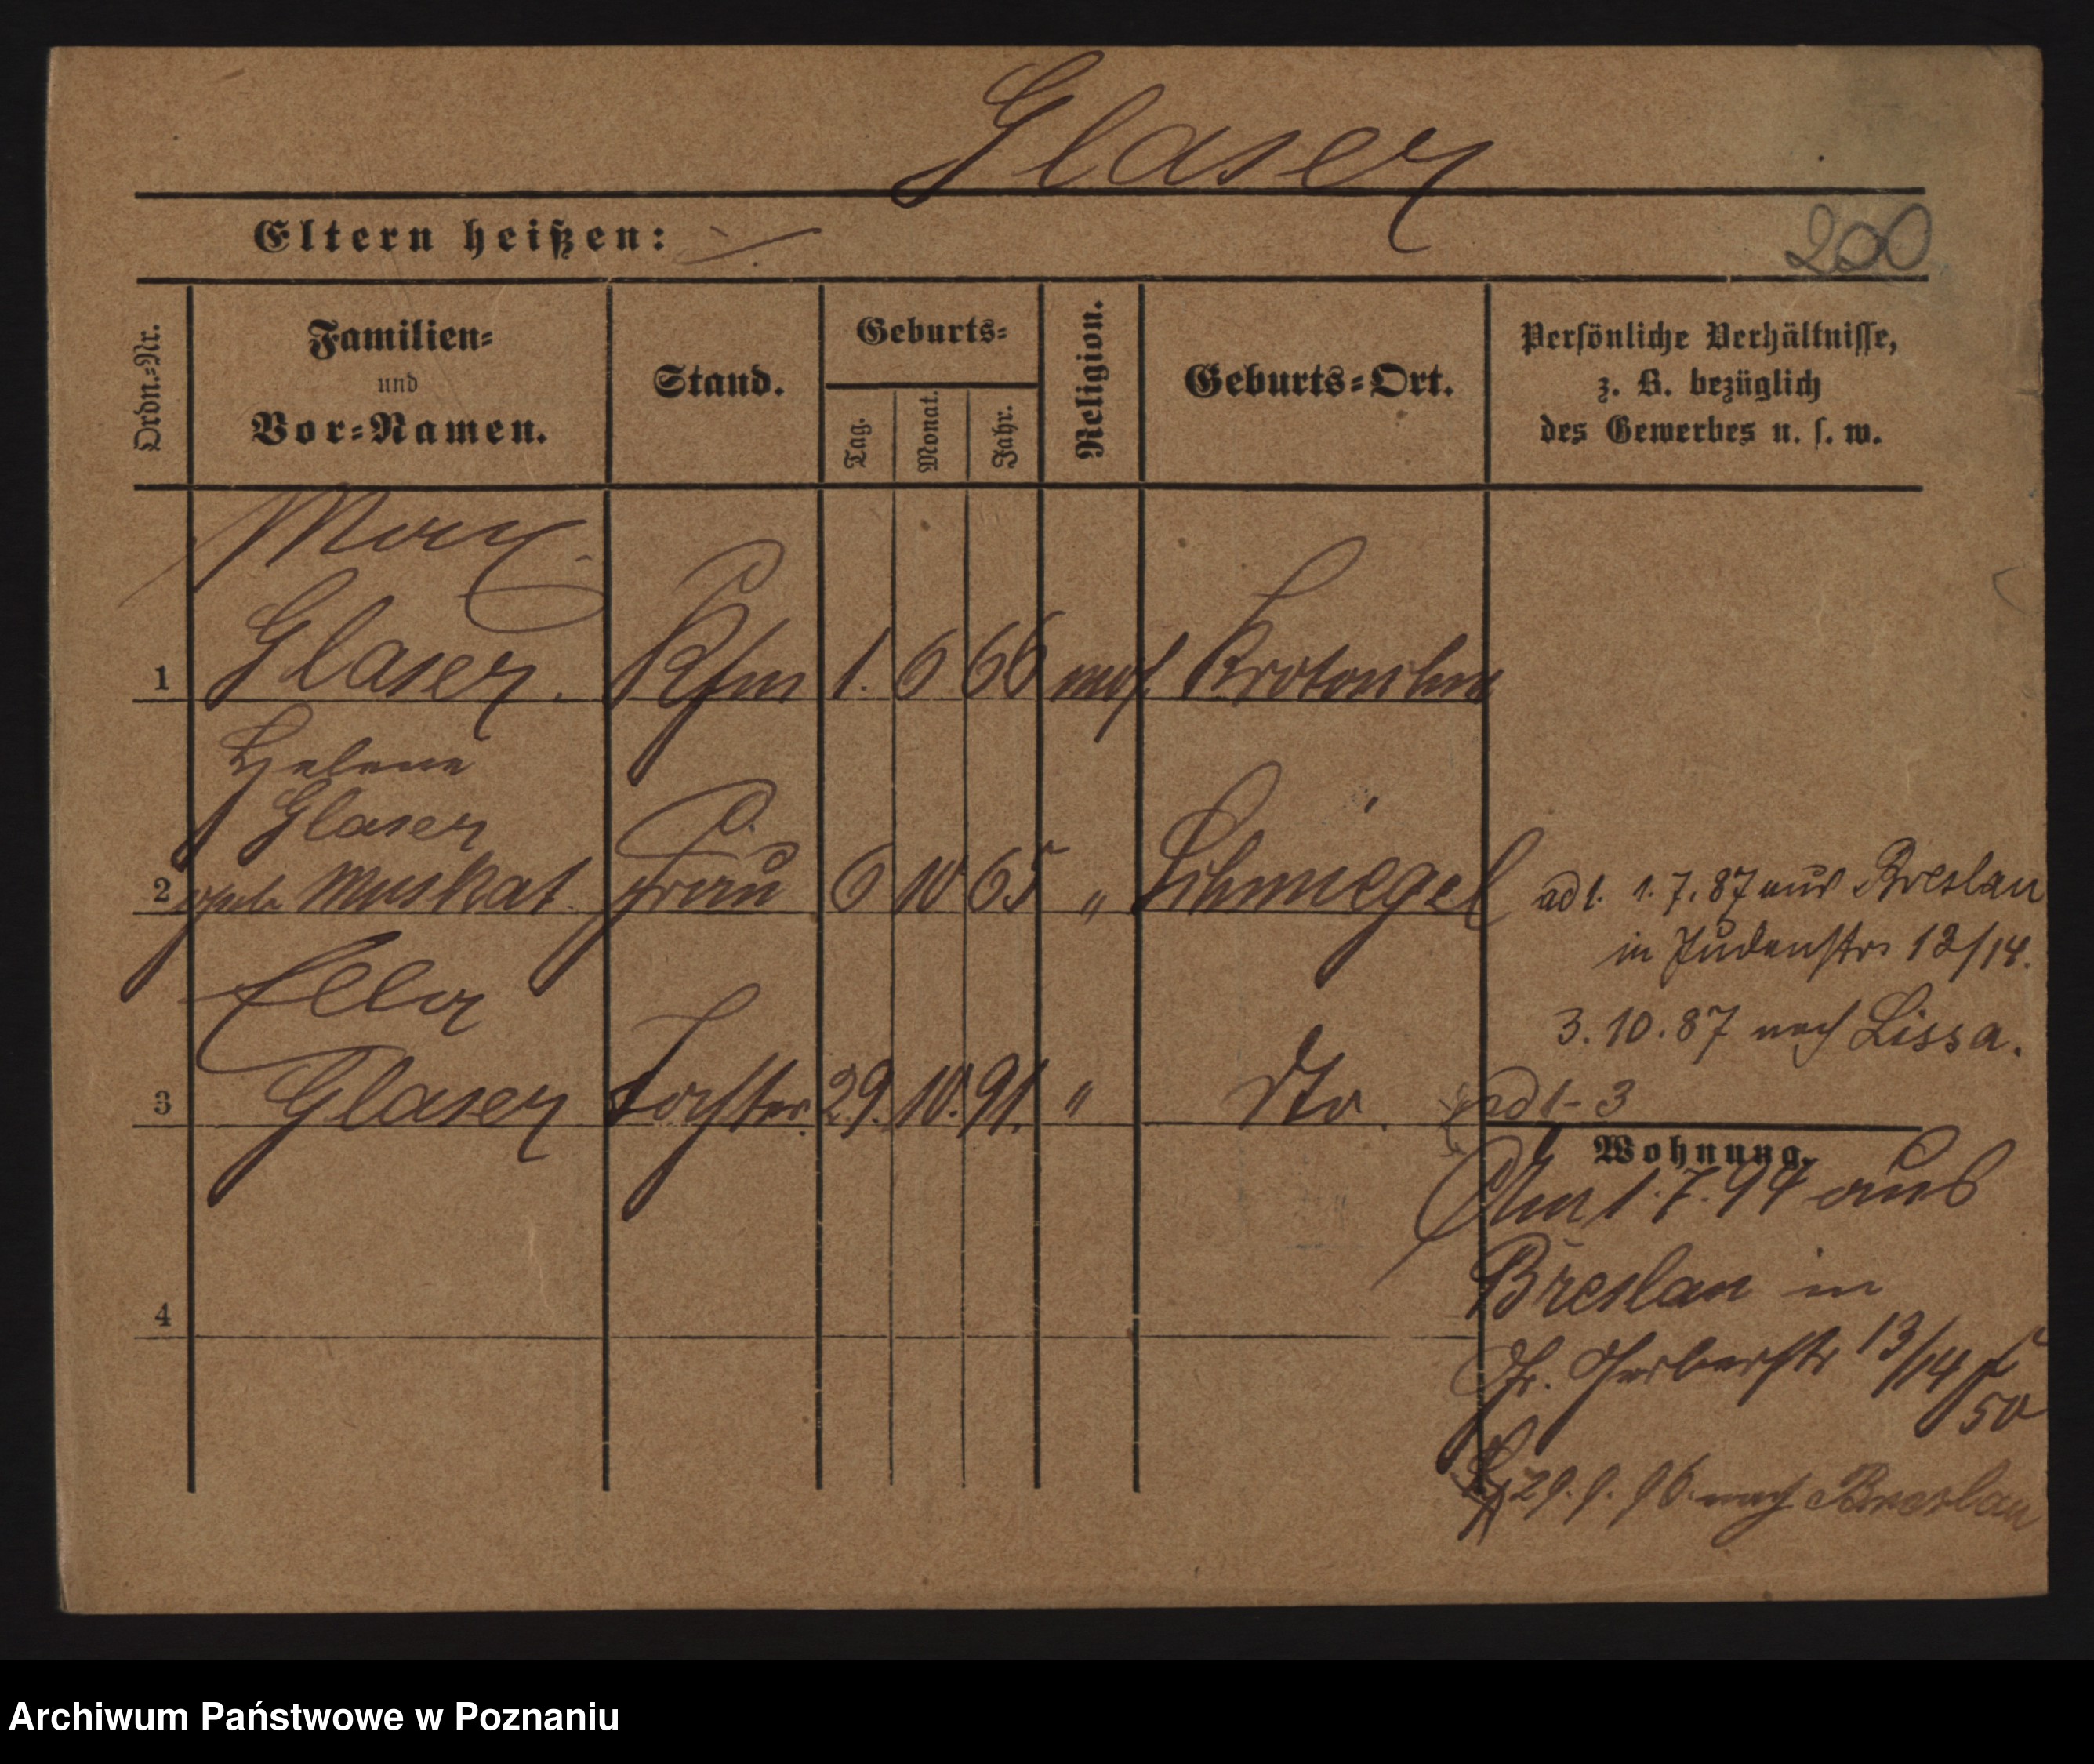 Glaser
Eltern heißen:
200
Ordn.=Nr.
Familien=
und
Vor=Namen.
Stand.
Geburts=
Tag.
Monat.
Jahr.
Religion.
Geburts=Ort.
Persönliche Verhältnisse,
z. B. bezüglich
des Gewerbes u. s. w.
Max
1 Glaser. Kfm 1. 6 66 mos. Krotoschin
Helene
Glaser
2 geb. Muskat Frau 6 10 65 " Schmiegel
ad 1. 1. 7. 87 aus Breslau
in Judenstr 13/14.
3. 10. 87 nach Lissa.
Ella
3 Glaser Tochter 29. 10. 91. " dto.
ad 1-3
Wohnung.
Am 1. 7. 94 aus
Breslau in
Gr. Gerberstr 13/14
50
4
29. 9. 96. nach Breslau
Archiwum Państwowe w Poznaniu